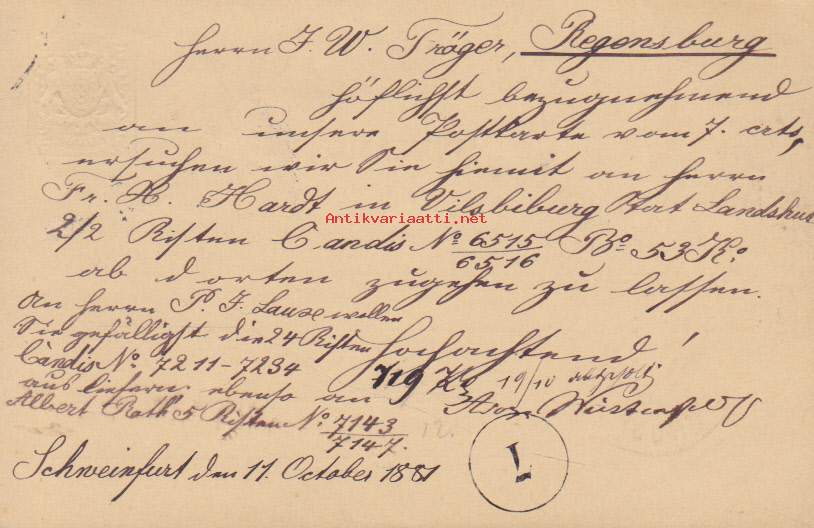 Herrn J. W. Tröger, Regensburg
höflichst bezugnehmend
an unsere Postkarte vom 7. crts,
ersuchen wir Sie hiemit an Herrn
Fr. X. Hardt in Vilsbiburg Stat Landshut
Antikvariaatti.net
2/2 Kisten Candis No 6515/6516 Bo 53 Ko
ab dorten zugehen zu lassen.
An Herrn P. J. wollen
Sie gefälligst die 24 Kisten Hochachtend!
Candis No. 7211-7234
719 Ko 19/10
ausliefern ebenso an
Albert Rath 5 Kisten No 7143/7147.
L
Schweinfurt den 11. October 1881